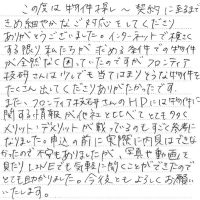 この度は物件探し～契約に至るまで
きめ細やかなご対応をしてくださり
ありがとうございました。インターネットで検さく
する限り私たちがだめる条件での物件
が全然なく困っていたのですが、フロンティア
技研さんは少しでも当てはまりそうな物件を
たくさん出してくださりありがたかったです。
また、フロンティア技研さんのHPには物件に
関する情報が他社と比べてとても多く
メリット・デメリットが載っているのもすごく参考に
なりました。申込の前に実際に内見はできな
かったので不安もありましたが、写真や動画を
見たりLINEでも気軽に聞くことができたので
とても助かりました。今後ともよろしくお願い
いたします。